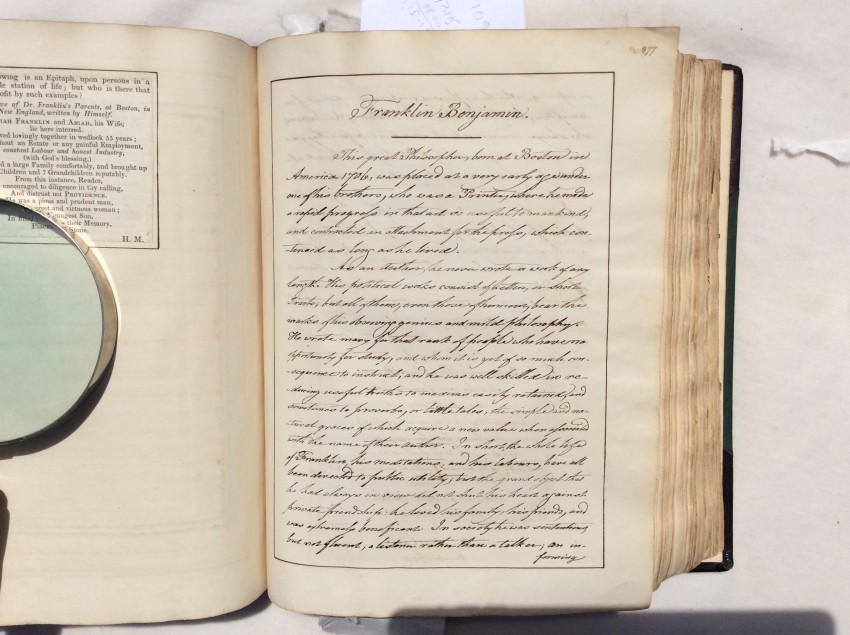 owing is an Epitaph, upon persons in a
le station of life; but who is there that
ofit by such examples?
ve of Dr. Franklin's Parents, at Boston, in
New England, written by Himself.
IAH FRANKLIN and ABIAH, his Wife;
lie here interred.
ved lovingly together in wedlock 55 years;
thout an Estate or any gainful Employment,
constant Labour and honest Industry,
(with God's blessing,)
d a large Family comfortably, and brought up
Children and 7 Grandchildren reputably.
From this instance, Reader,
encouraged to diligence in thy calling,
And distrust not PROVIDENCE.
He was a pious and prudent man,
creet and virtuous woman;
Youngest Son,
their Memory,
Stone.
H. M.
377
Franklin Benjamin.
This great Philosopher, born at Boston in
America 1706, was placed at a very early age under
one of his brothers, who was a Printer, where he made
a rapid progress in that art so useful to mankind,
and contracted an attachment for the press, which con-
tinued as long as he loved.
As an Author, he never wrote a work of any
length. His political works consist of letters, or short
Tracts; but all of them, even those of humour, bear the
marks of his observing genius and mild Philosophy.
He wrote many for that rank of people who have no
opportunity for study, and whom it is yet of so much con-
sequence to instruct; and he was well skilled in re-
ducing useful truths to maxims easily retained, and
sometimes to proverbs, or little tales, the simple and na-
tural graces of which acquire a new value when associated
with the name of their Author. In short, the whole life
of Franklin, his meditations, and his labours, have all
been directed to public utility, but the grand object that
he had always in view did not shut his heart against
private friendship: he loved his family, his friends, and
was extremely beneficent. In society he was sententious,
but not fluent; a listener rather than a talker; an in-
forming